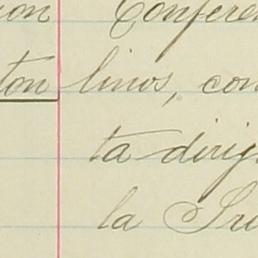 ion Conferen
ton linos, con
ta dirig
la Su